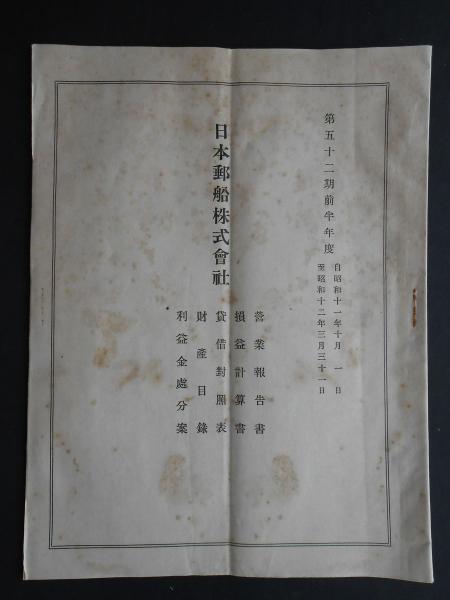 第五十二期前半年度
自昭和十一年十月一日
至昭和十二年三月三十一日
日本郵船株式會社
營業報告書
損益計算書
貸借對照表
財產目錄
利益金處分案